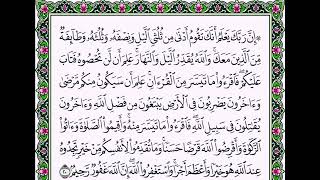 ۞ إِنَّ رَبَّكَ يَعْلَمُ أَنَّكَ تَقُومُ أَدْنَىٰ مِن ثُلُثَيِ ٱلَّيْلِ وَنِصْفَهُۥ وَثُلُثَهُۥ وَطَآئِفَةٌ
مِّنَ ٱلَّذِينَ مَعَكَ ۚ وَٱللَّهُ يُقَدِّرُ ٱلَّيْلَ وَٱلنَّهَارَ ۚ عَلِمَ أَن لَّن تُحْصُوهُ فَتَابَ
عَلَيْكُمْ ۖ فَٱقْرَءُوا۟ مَا تَيَسَّرَ مِنَ ٱلْقُرْءَانِ ۚ عَلِمَ أَن سَيَكُونُ مِنكُم مَّرْضَىٰ ۙ
وَءَاخَرُونَ يَضْرِبُونَ فِى ٱلْأَرْضِ يَبْتَغُونَ مِن فَضْلِ ٱللَّهِ ۙ وَءَاخَرُونَ
يُقَٰتِلُونَ فِى سَبِيلِ ٱللَّهِ ۖ فَٱقْرَءُوا۟ مَا تَيَسَّرَ مِنْهُ ۚ وَأَقِيمُوا۟ ٱلصَّلَوٰةَ وَءَاتُوا۟
ٱلزَّكَوٰةَ وَأَقْرِضُوا۟ ٱللَّهَ قَرْضًا حَسَنًا ۚ وَمَا تُقَدِّمُوا۟ لِأَنفُسِكُم مِّنْ خَيْرٍ تَجِدُوهُ
عِندَ ٱللَّهِ هُوَ خَيْرًا وَأَعْظَمَ أَجْرًا ۚ وَٱسْتَغْفِرُوا۟ ٱللَّهَ ۖ إِنَّ ٱللَّهَ غَفُورٌ رَّحِيمٌۢ ٢٠